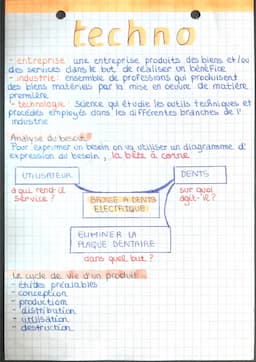 techno
- entreprise une entreprise produits des biens et/ou
des services dans le but de réaliser un bénéfice
- industrie: ensemble de professions qui produisent
des biens matériels par la mise en oeuvre de matière
première
- technologie science qui étudie les outils techniques et
procédés employés dans les différentes branches de l'
industrie
Analyse du besoin
Pour exprimer un besoin on va utiliser un diagramme d'
expression du besoin, la bête à corne
UTILISATEUR
DENTS
à qui rend-il
service?
sur quoi
agit-il?
BROSSE A DENTS
ELECTRIQUE
ELIMINER LA
PLAQUE DENTAIRE
dans quel but?
Le cycle de vie d'un produit
- études préalables
- conception
- production
- distribution
- utilisation
- destruction